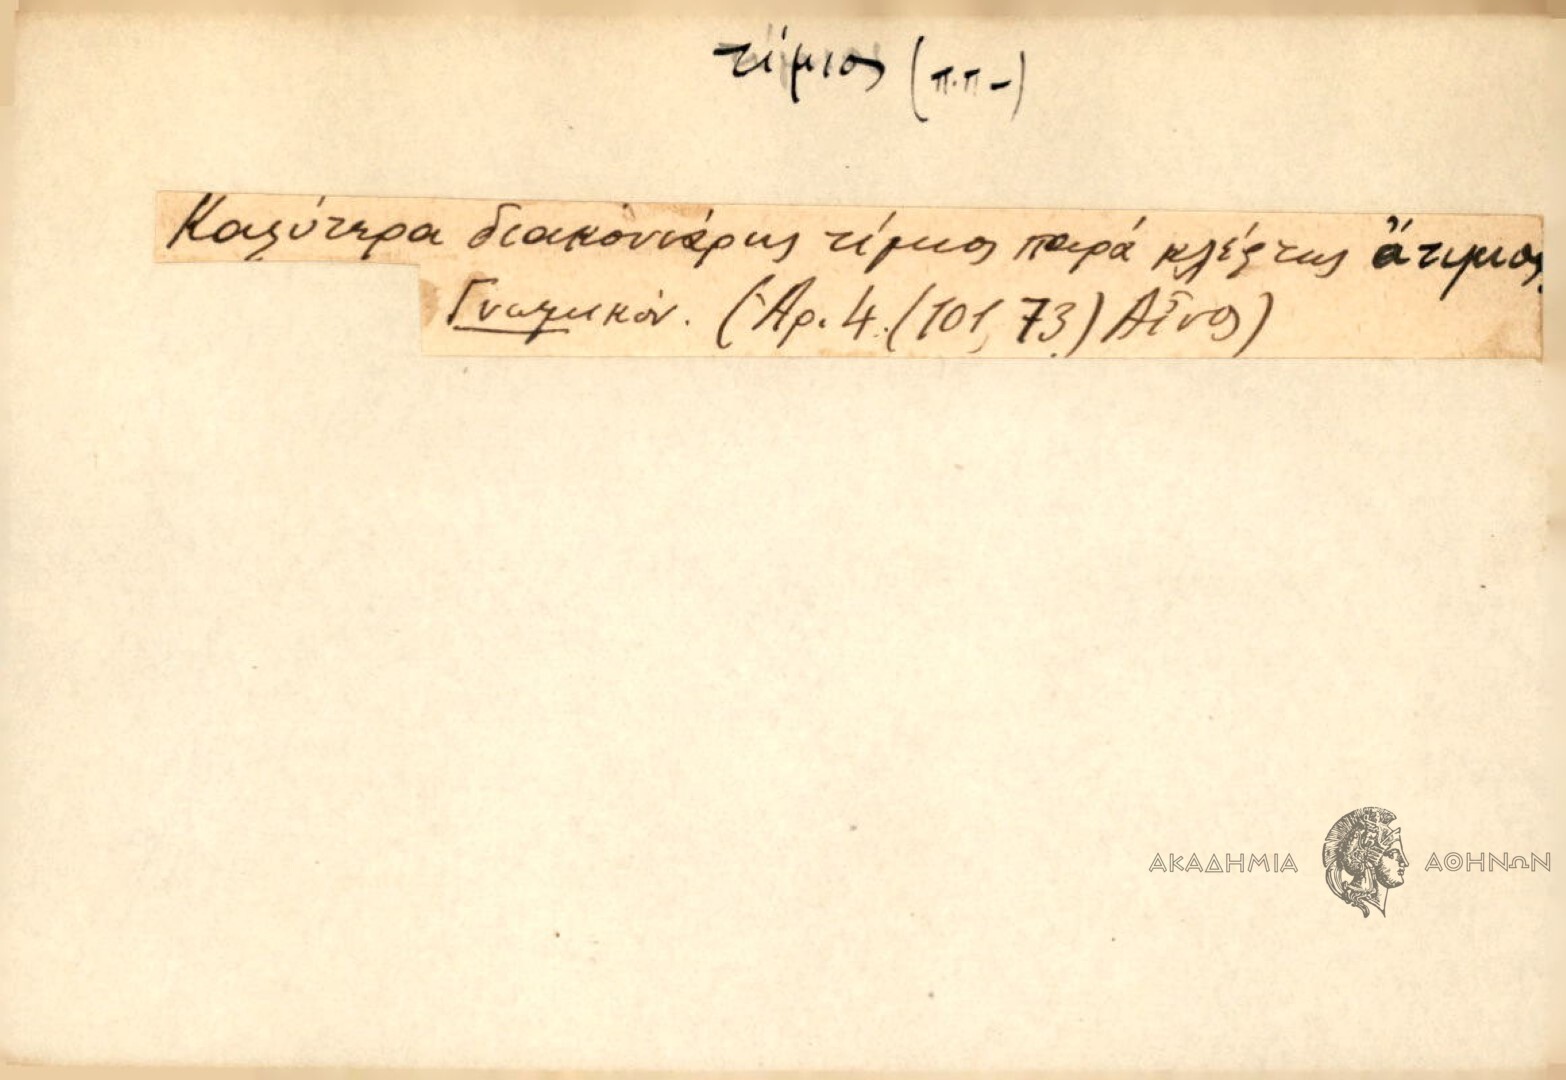 τίμιος (π.π-)
Καλύτερα διακονιάρης τίμιος παρά κλέφτης ἄτιμος.
Γνωμικόν. (Ἀρ. 4. (101, 73) Αἶνος)
ΑΚΑΔΗΜΙΑ ΑΘΗΝΩΝ